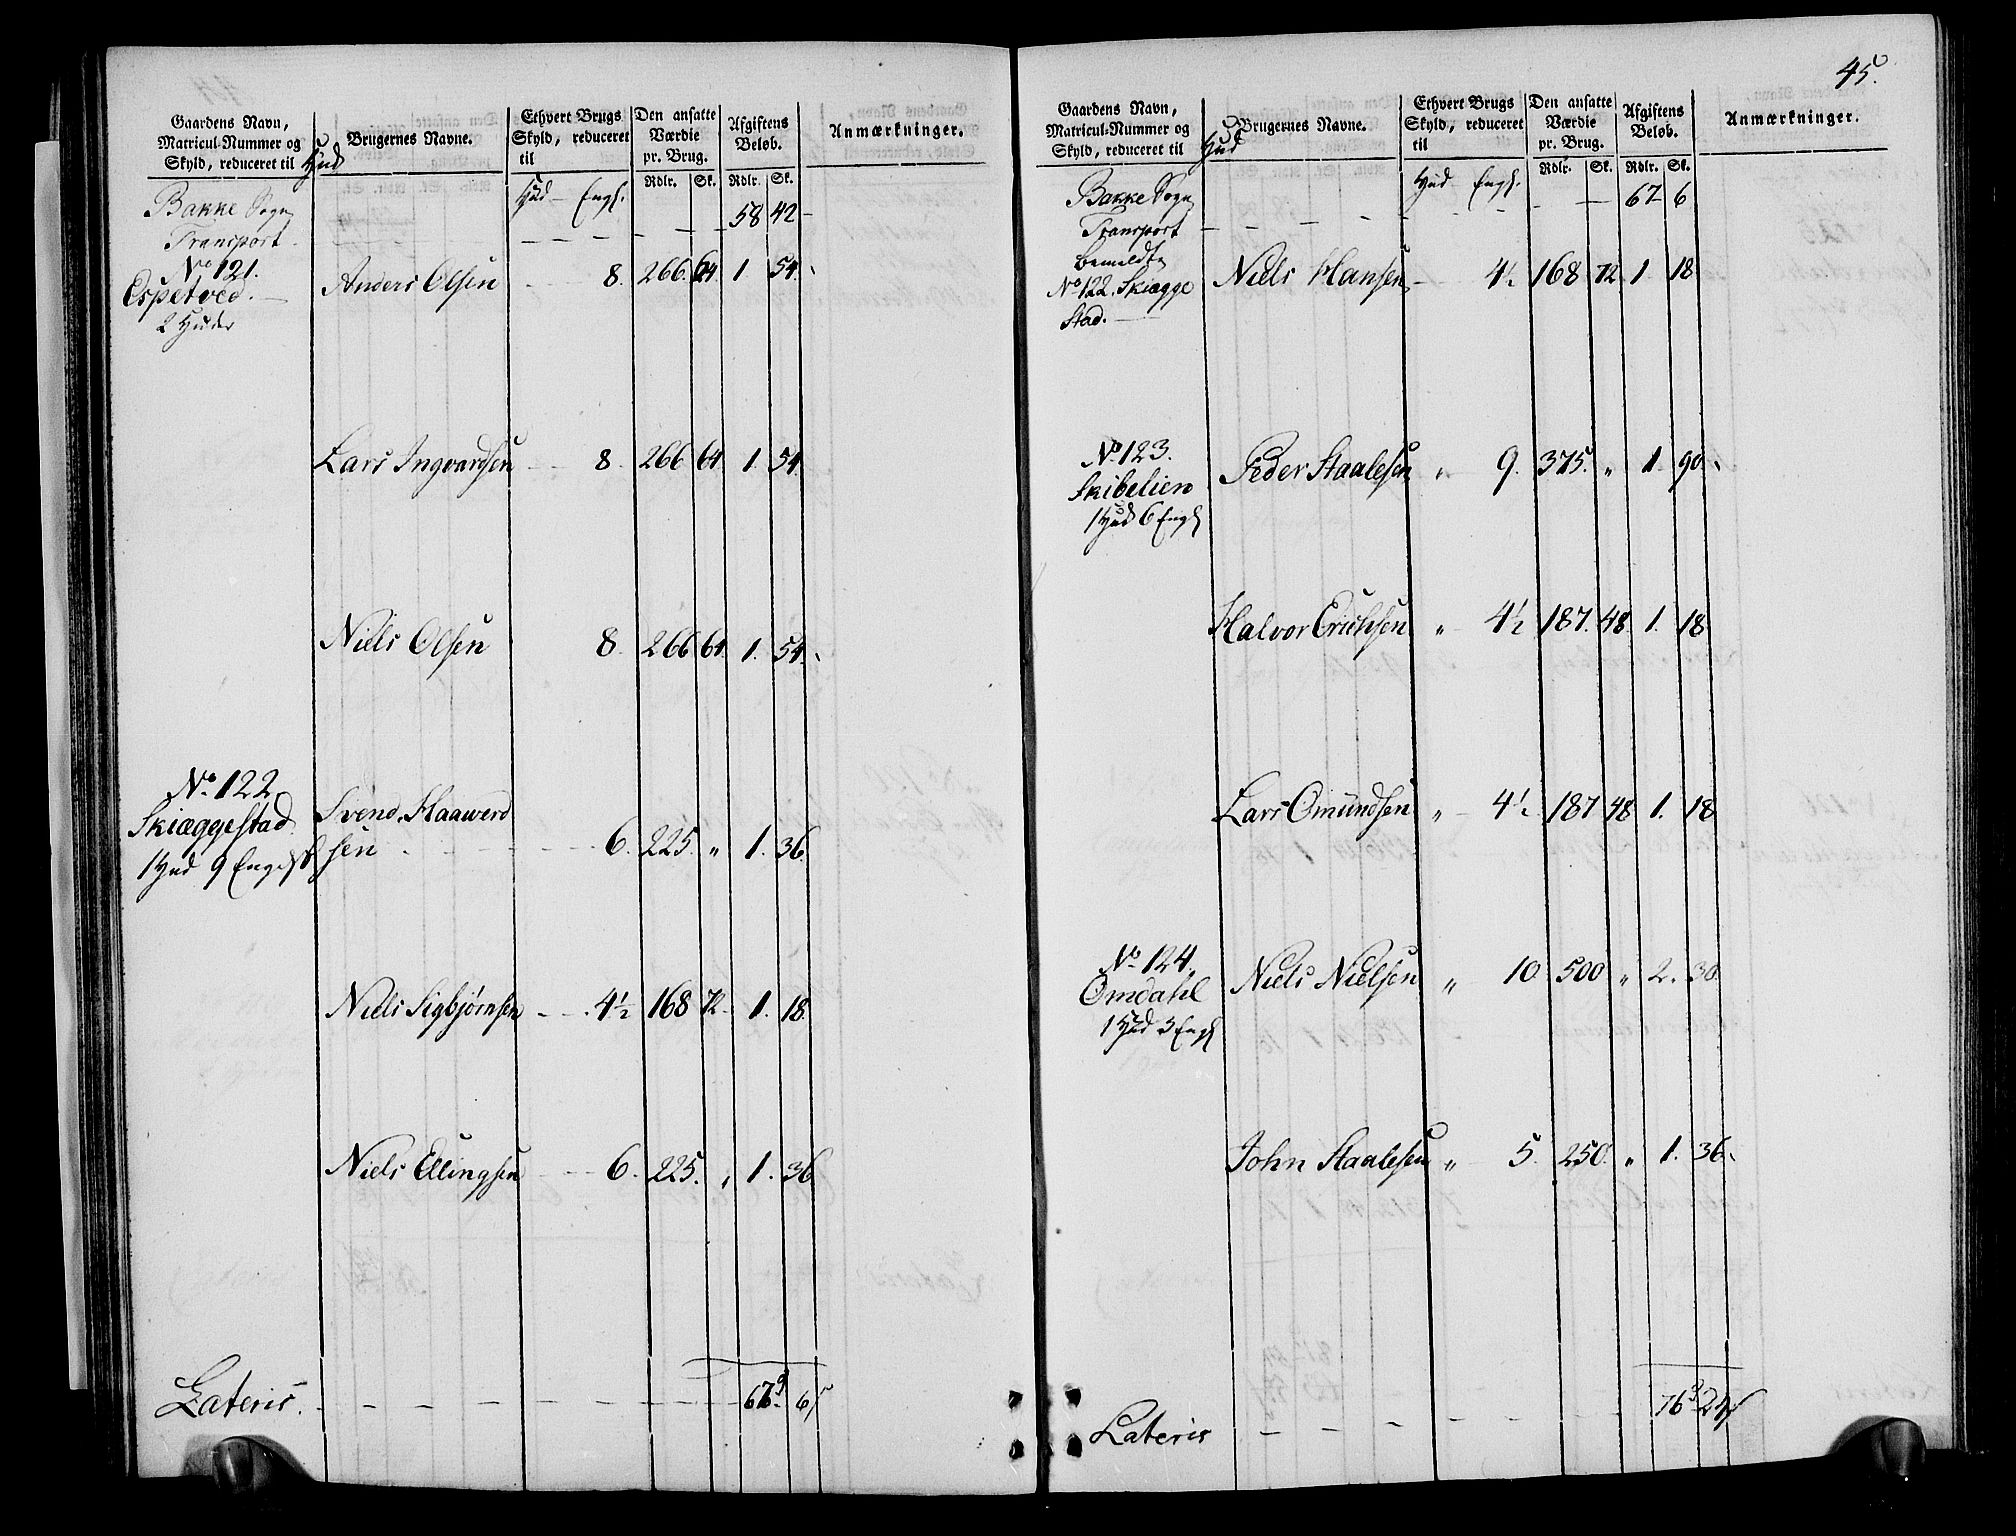 Gaardens Navn, Matricul-Nummer og Skyld, reduceret til Hud
Brugernes Navne.
Ethvert Brugs Skyld, reduceret til
Den ansatte Værdie pr. Brug.
Afgiftens Beløb.
Anmærkninger.
Hud — Engl. Rdlr. Sk. Rdlr. Sk.
Bakke Sogn
Transport. 58 42
No 121. Anders Olsen 8. 266. 64. 1. 54.
Espetved.
2 Huder
Lars Ingvardsen 8. 266 64 1. 54.
Niels Olsen 8. 266 64. 1. 54.
No 122
Skiæggestad Svend Haawerd
1 Hud 9 Engl sen 6. 225. „ 1. 36.
Niels Sigbjørnsen 4½ 168 72. 1. 18.
Niels Ellingsen 6. 225. „ 1. 36
Lateris. 67 6
45.
Gaardens Navn, Matricul-Nummer og Skyld, reduceret til Hud
Brugernes Navne.
Ethvert Brugs Skyld, reduceret til
Den ansatte Værdie pr. Brug.
Afgiftens Beløb.
Anmærkninger.
Hud Engl. Rdlr. Sk. Rdlr. Sk.
Bakke Sogn 67 6
Transport
bemeldte Niels Hansen 4½ 168 72 1. 18
No 122. Skiægge
stad.
No 123. Peder Staalesen „ 9. 375. „ 1. 90.
Skibelien
1 Hud 6 Engl
Halvor Erichsen „ 4½ 187. 48. 1. 18
Lars Omundsen „ 4½ 187 48 1. 18
No 124. Niels Nielsen „ 10 500 „ 2. 30
Omdahl
1 Hud 3 Engl
John Staalesen „ 5. 250. „ 1. 36.
Lateris 76 24